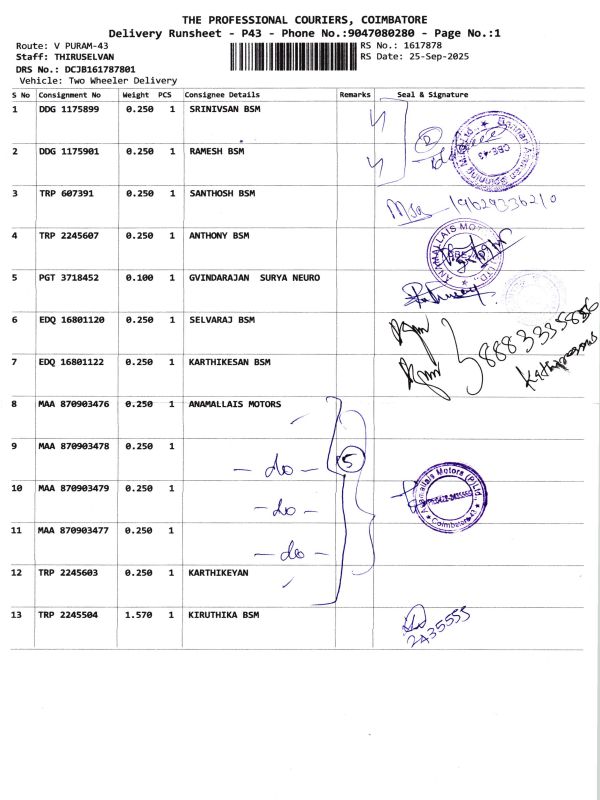 THE PROFESSIONAL COURIERS, COIMBATORE
Delivery Runsheet - P43 - Phone No.:9047080280 - Page No.:1
Route: V PURAM-43
RS No.: 1617878
Staff: THIRUSELVAN
RS Date: 25-Sep-2025
DRS No.: DCJB161787801
Vehicle: Two Wheeler Delivery
S No Consignment No Weight PCS Consignee Details Remarks Seal & Signature
1 DDG 1175899 0.250 1 SRINIVSAN BSM
2 DDG 1175901 0.250 1 RAMESH BSM
2
CBE-43
3 TRP 607391 0.250 1 SANTHOSH BSM
19629336210
4 TRP 2245607 0.250 1 ANTHONY BSM
ANAMALLAIS MOTORS
5 PGT 3718452 0.100 1 GVINDARAJAN SURYA NEURO
6 EDQ 16801120 0.250 1 SELVARAJ BSM
8883335886
7 EDQ 16801122 0.250 1 KARTHIKESAN BSM
8 MAA 870903476 0.250 1 ANAMALLAIS MOTORS
9 MAA 870903478 0.250 1
- do -
5
10 MAA 870903479 0.250 1
- do -
Anamallais Motors (P) Ltd.,
Coimbatore
11 MAA 870903477 0.250 1
- do -
12 TRP 2245603 0.250 1 KARTHIKEYAN
13 TRP 2245504 1.570 1 KIRUTHIKA BSM
2435555